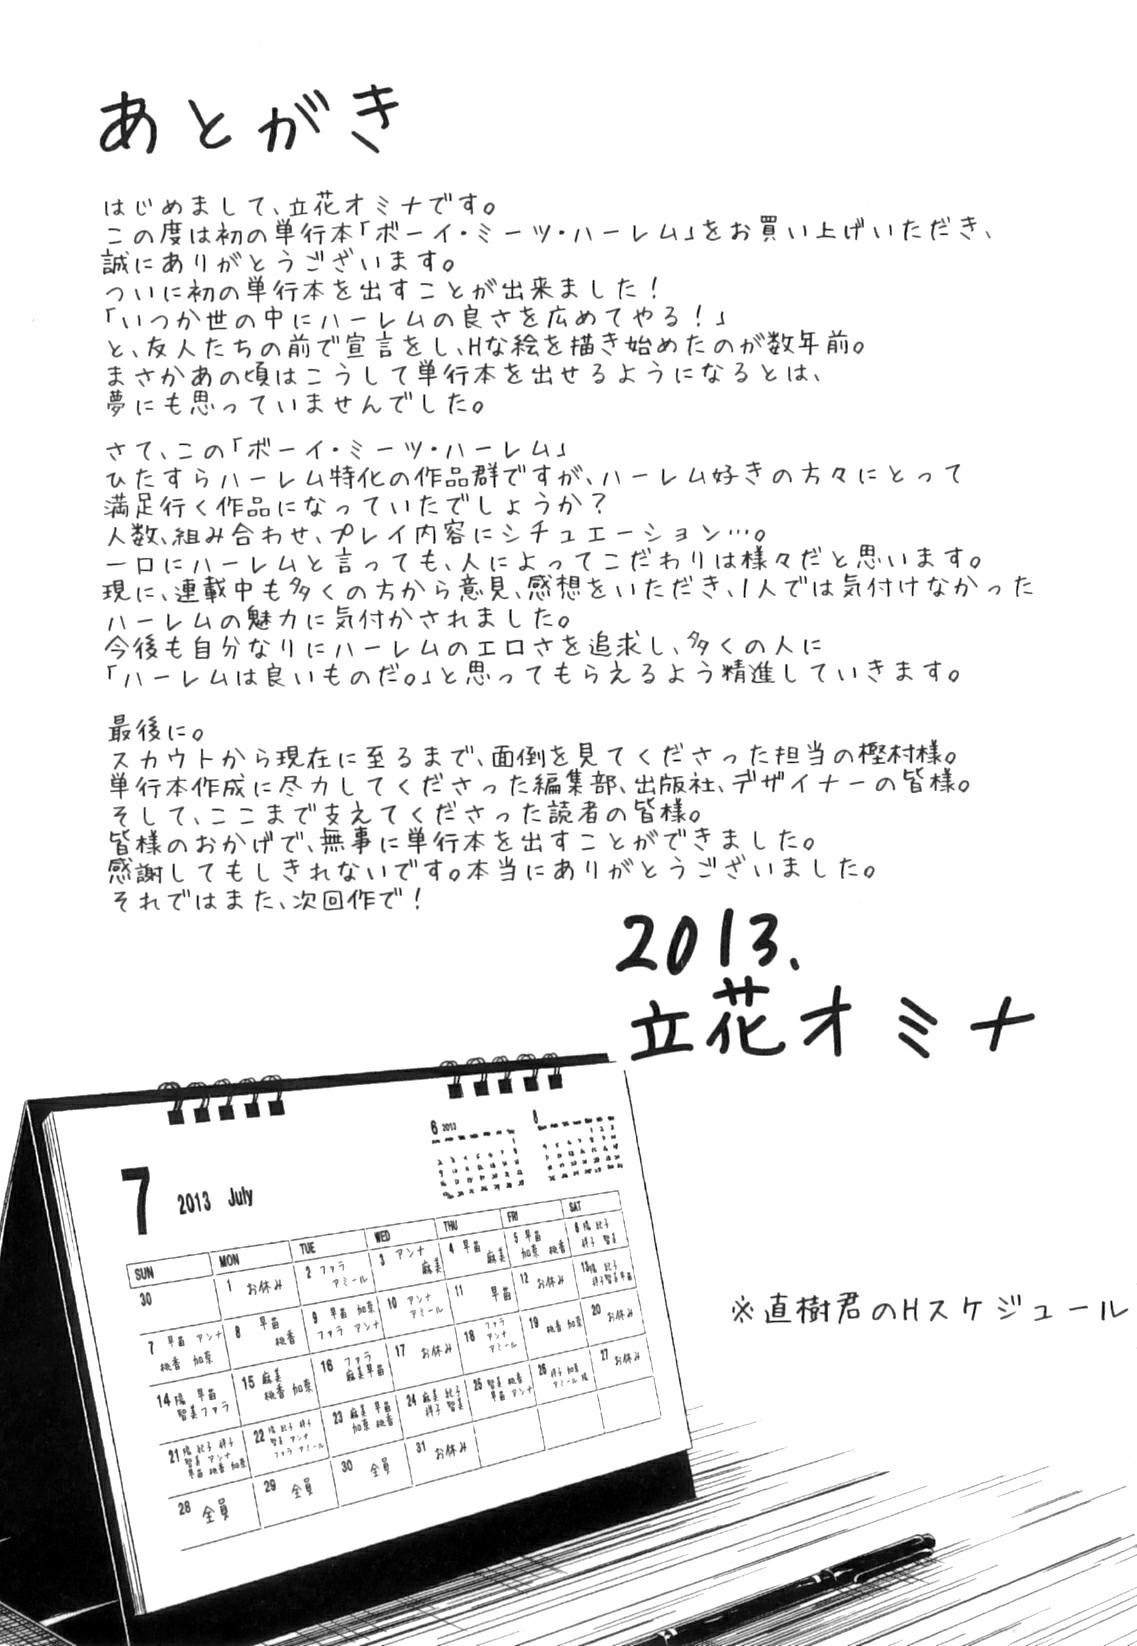 あとがき
はじめまして、立花オミナです。
この度は初の単行本「ボーイ・ミーツ・ハーレム」をお買い上げいただき、
誠にありがとうございます。
ついに初の単行本を出すことが出来ました!
「いつか世の中にハーレムの良さを広めてやる!」
と、友人たちの前で宣言をし、Hな絵を描き始めたのが数年前。
まさかあの頃はこうして単行本を出せるようになるとは、
夢にも思っていませんでした。
さて、この「ボーイ・ミーツ・ハーレム」
ひたすらハーレム特化の作品群ですが、ハーレム好きの方々にとって
満足行く作品になっていたでしょうか?
人数、組み合わせ、プレイ内容にシチュエーション…。
一口にハーレムと言っても、人によってこだわりは様々だと思います。
現に、連載中も多くの方から意見、感想をいただき、1人では気付けなかった
ハーレムの魅力に気付かされました。
今後も自分なりにハーレムのエロさを追求し、多くの人に
「ハーレムは良いものだ。」と思ってもらえるよう精進していきます。
最後に。
スカウトから現在に至るまで、面倒を見てくださった担当の樫村様。
単行本作成に尽力してくださった編集部、出版社、デザイナーの皆様。
そして、ここまで支えてくださった読者の皆様。
皆様のおかげで、無事に単行本を出すことができました。
感謝してもしきれないです。本当にありがとうございました。
それではまた、次回作で!
2013.
立花オミナ
6 2013
8
7 2013 July
SUN MON TUE WED THU FRI SAT
30
1 お休み
2 ファラ アミール
3 アンナ 麻美
4 早苗 麻美
5 早苗 加奈 桃香
6 陽 妃子 祥子 智美
7 早苗 アンナ 桃香 加奈
8 早苗 桃香
9 早苗 加奈 ファラ アンナ
10 アンナ アミール
11 早苗
12 お休み
13 陽 妃子 祥子 智美 早苗
14 陽 早苗 智美 ファラ
15 麻美 桃香 加奈
16 ファラ 麻美 早苗
17 お休み
18 ファラ アンナ アミール
19 桃香 加奈
20 お休み
21 陽 妃子 祥子 智美 アンナ 早苗 桃香 加奈
22 陽 妃子 祥子 智美 アンナ ファラ アミール
23 麻美 早苗 加奈 桃香
24 麻美 妃子 祥子 智美
25 智美 桃香 早苗 アンナ
26 祥子 加奈 アミール 陽
27 お休み
28 全員
29 全員
30 全員
31 お休み
※直樹君のHスケジュール